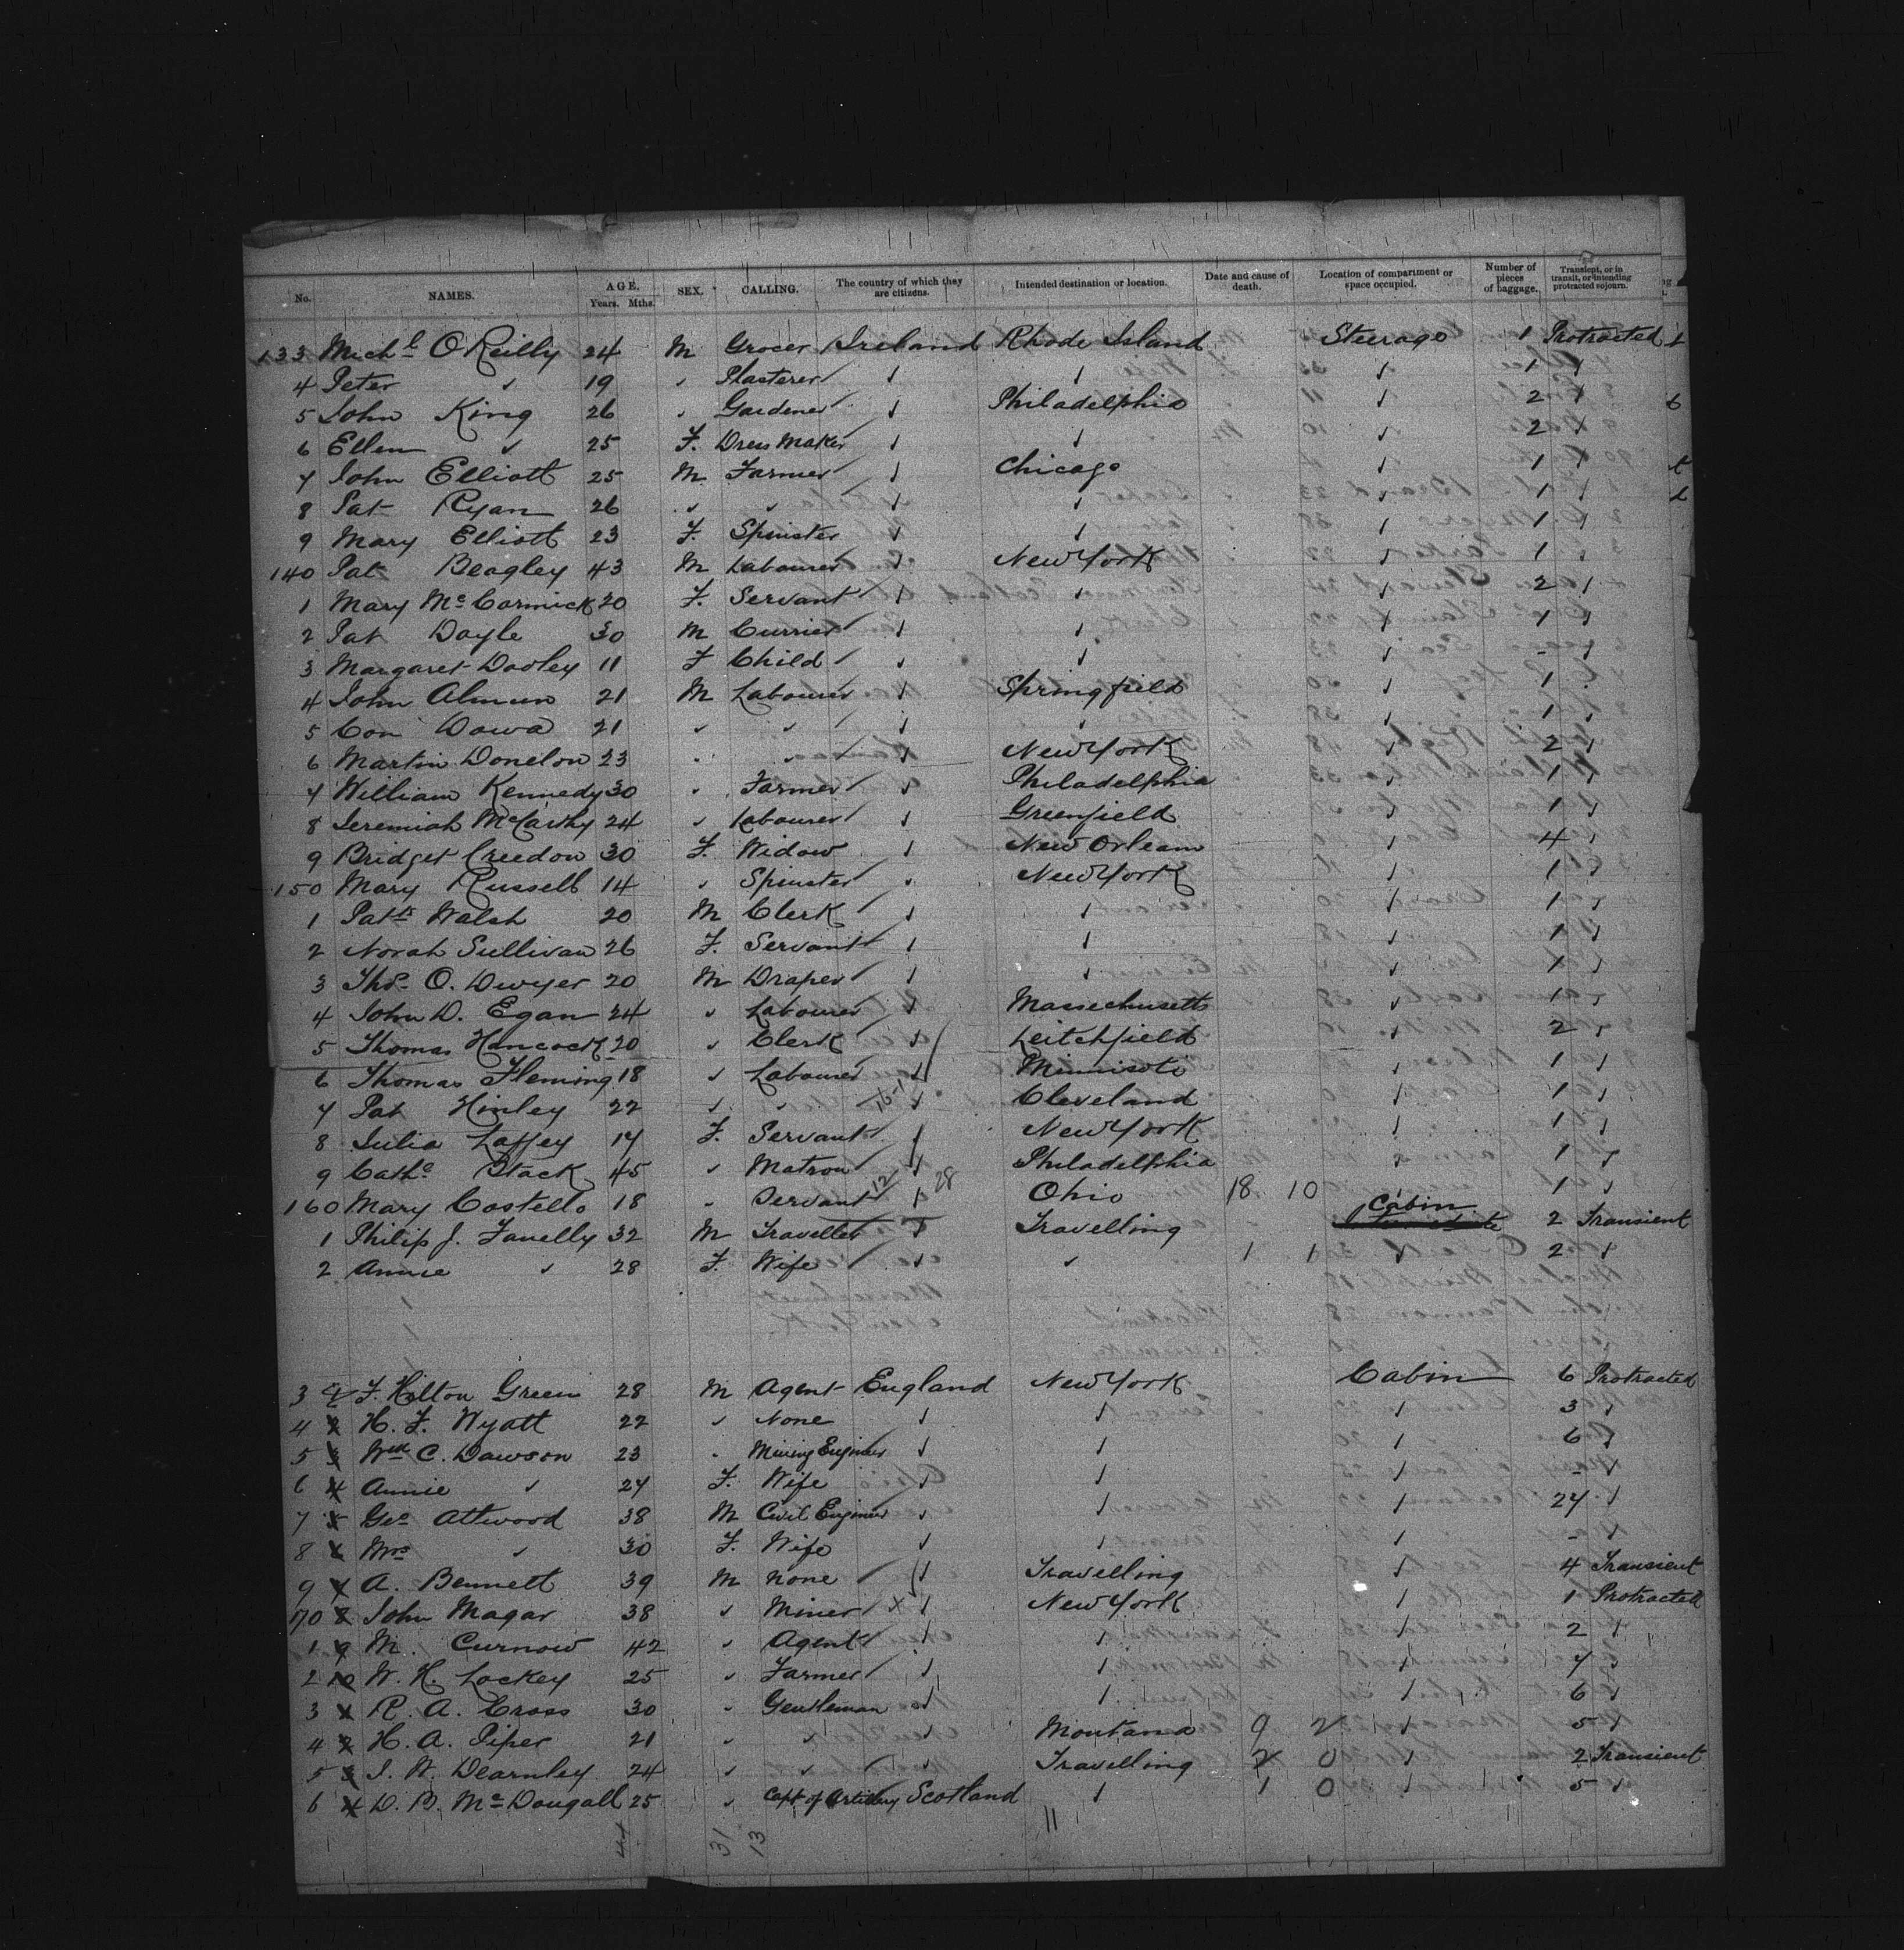 No. NAMES. AGE. Years. Mths. SEX. CALLING. The country of which they are citizens. Intended destination or location. Date and cause of death. Location of compartment or space occupied. Number of pieces of baggage. Transient, or in transit, or intending protracted sojourn.
133 Michl O'Reilly 24 M Grocer Ireland Rhode Island Steerage 1 Protracted
4 Peter " 19 " Plasterer " " " 1 "
5 John King 26 " Gardener " Philadelphia " 2 "
6 Ellen " 25 F. Dress Maker " " " 2 "
7 John Elliott 25 M Farmer " Chicago " 1 "
8 Pat Ryan 26 " " " " " 1 "
9 Mary Elliott 23 F. Spinster " " " 1 "
140 Pat Beagley 43 M Labourer " New York " 1 "
1 Mary McCormick 20 F. Servant " " " 2 "
2 Pat Doyle 30 M Currier " " " 1 "
3 Margaret Dooley 11 F Child " " " - "
4 John 21 M Labourer " Springfield " 1 "
5 Con Dowd 21 " " " " " 1 "
6 Martin Donelon 23 " " " New York " 2 "
7 William Kennedy 30 " Farmer " Philadelphia " 1 "
8 Jeremiah McCarthy 24 " Labourer " Greenfield " 1 "
9 Bridget Creedon 30 F. Widow " New Orleans " 4 "
150 Mary Russell 14 " Spinster " New York " 1 "
1 Patk Walsh 20 M Clerk " " " 1 "
2 Norah Sullivan 26 F. Servant " " " 1 "
3 Thos. O. Dwyer 20 M Draper " " " 1 "
4 John D. Egan 24 " Labourer " Massechusetts " 1 "
5 Thomas Hancock 20 " Clerk " Leitchfield " 2 "
6 Thomas Fleming 18 " Labourer " Minnisoti " 1 "
7 Pat Hinley 22 " " " Cleveland " 1 "
8 Julia Laffey 17 F. Servant " New York " 1 "
9 Cathe Stack 45 " Matron " Philadelphia " 1 "
160 Mary Costello 18 " Servant 12 " 28 Ohio 18 10 " 1 "
1 Philip J. Fanelly 32 M Traveller " Travelling Cabin 2 Transient
2 Annie " 28 F. Wife " " 1 1 " 2 "
3 F. Hilton Green 28 M Agent England New York Cabin 6 Protracted
4 2 H. F. Wyatt 22 " None " " " 3 "
5 3 Wm C. Dawson 23 " Mining Engineer " " " 6 "
6 4 Annie " 24 F. Wife " " " - "
7 5 Geo Attwood 38 M Civil Engineer " " " 24 "
8 6 Mrs " 30 F. Wife " " " - "
9 7 A. Bennett 39 M None " Travelling " 4 Transient
170 8 John Magar 38 " Miner X " New York " 1 Protracted
1 9 M. Curnow 42 " Agent " " " 2 "
2 10 W. H. Lockey 25 " Farmer " " " 7 "
3 1 R. A. Cross 30 " Gentleman " " " 6 "
4 2 H. A. Piper 21 " " " Montana 9 2 " 5 "
5 3 J. W. Dearnley 24 " " " Travelling 2 0 " 2 Transient
6 4 D. B. McDougall 25 " Capt of Artillery Scotland " 1 0 " 5 "
44 31 13 11